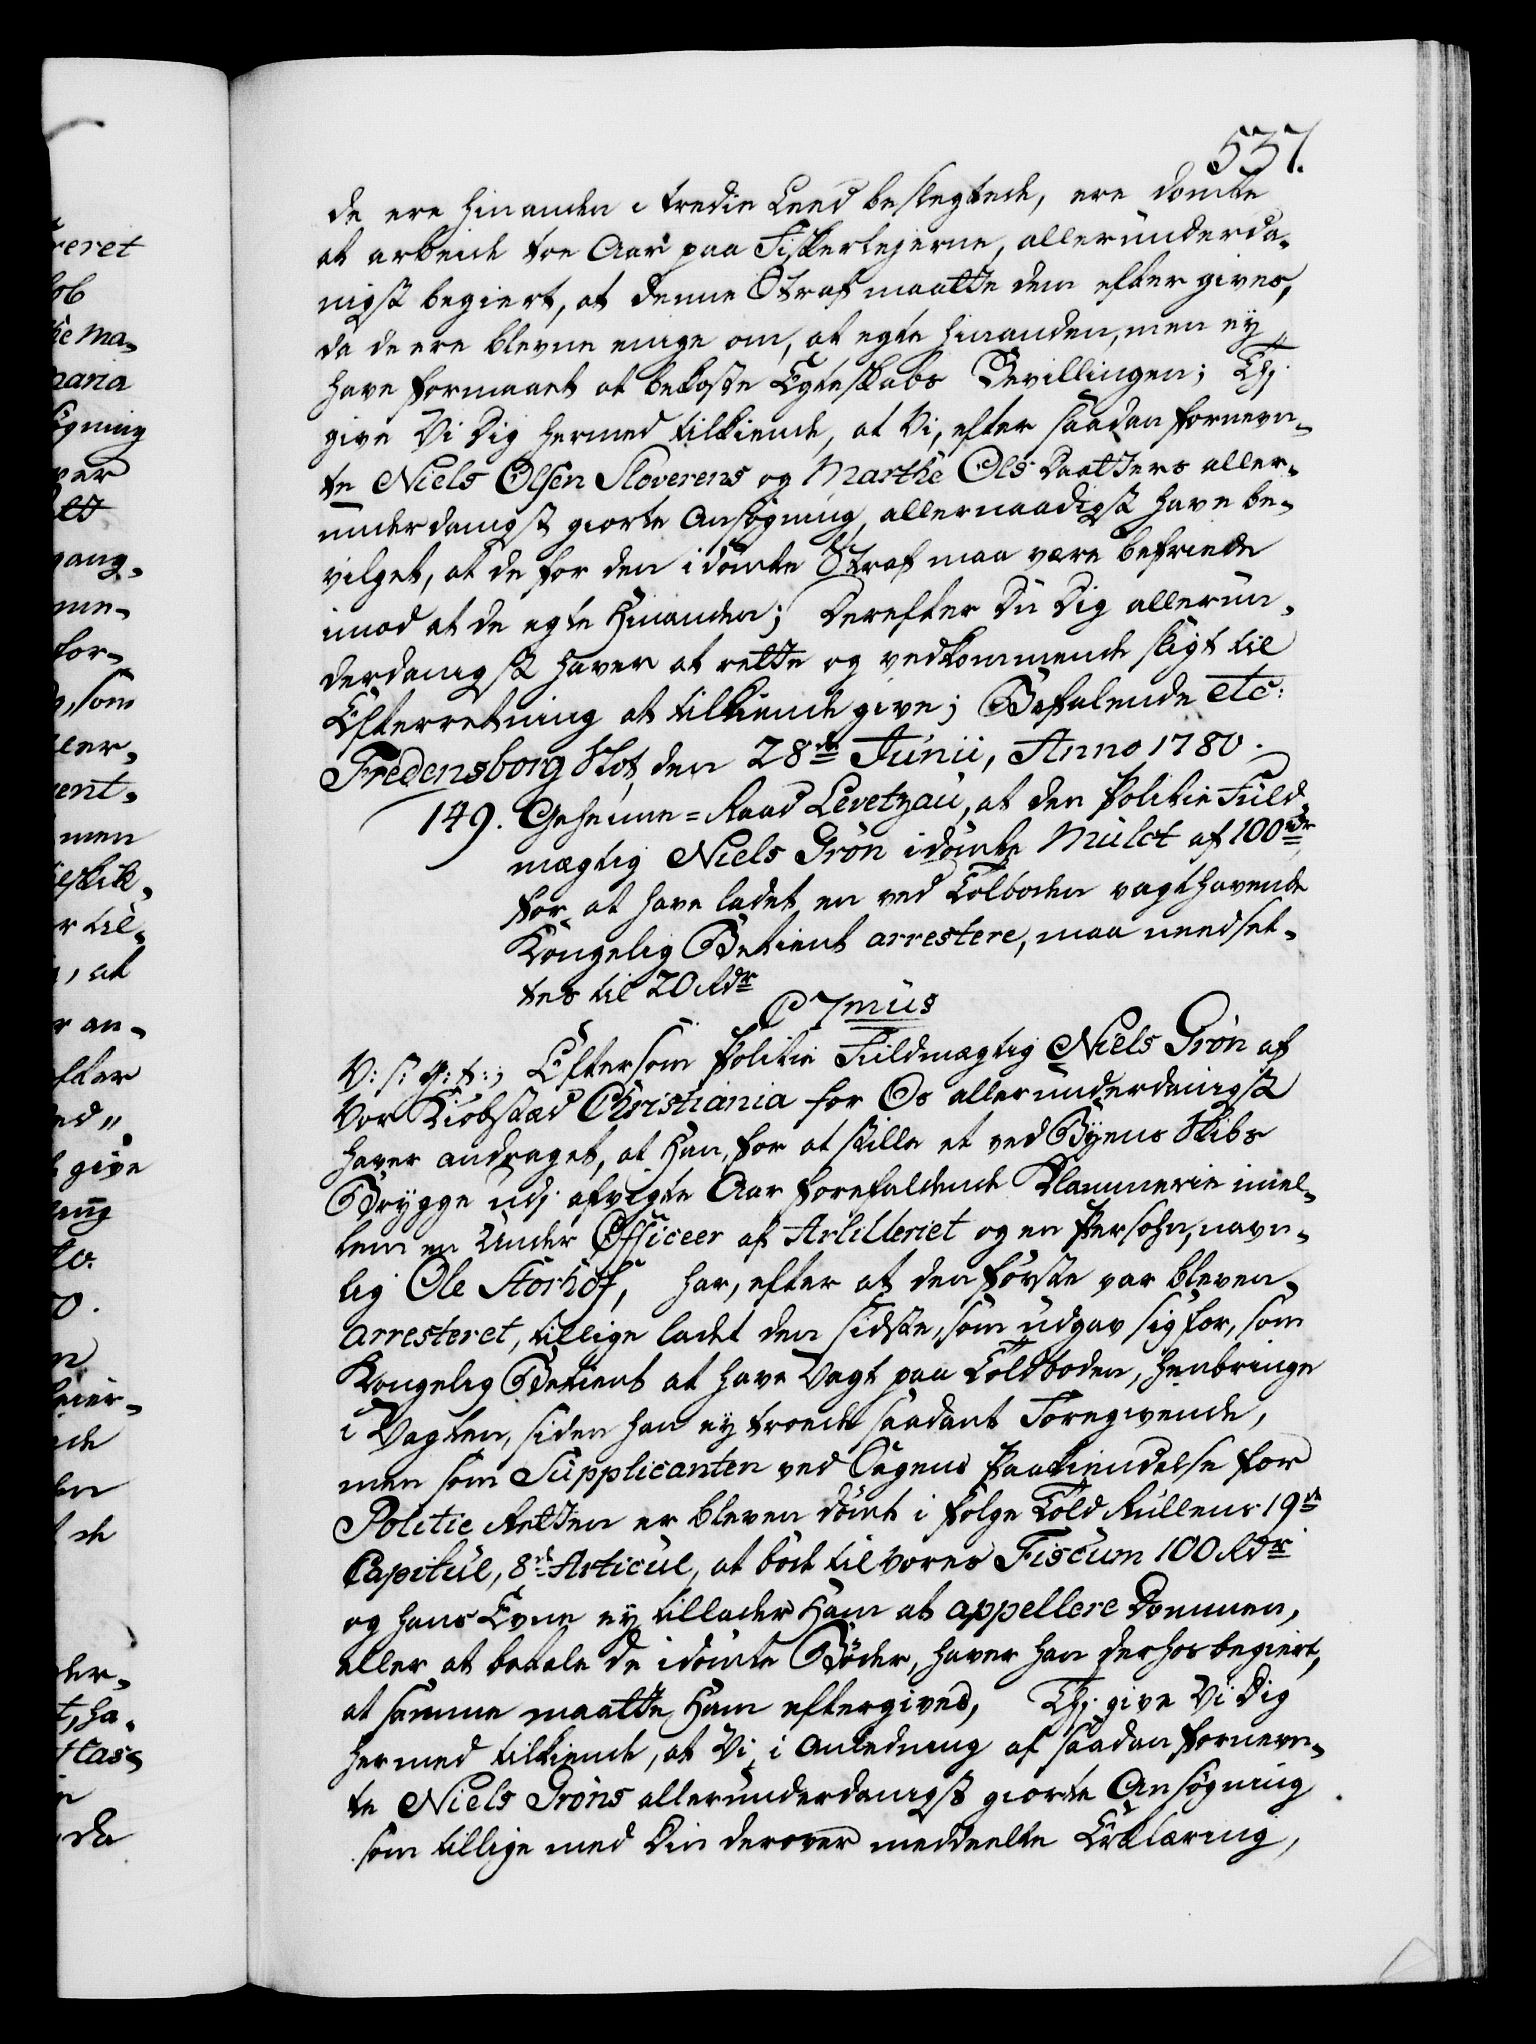 537.
de ere hinanden i tredie Leed beslegtede, ere dömte
at arbeide toe Aar paa Fiskerlejerne, allerunderda-
nigst begiert, at denne Straf maatte dem eftergives,
da de ere blevne enige om, at egte hinanden, men ey
have formaaet at bekoste Egteskabs Bevillingen; Thj
give Vi Dig hermed tilkiende, at Vi, efter saadan fornevn-
te Niels Olsen Sloverens og Marthe Ols Daatters aller-
underdanigst giorte Ansögning, allernaadigst have be-
vilget, at de for den idömte Straf maa være befriede
imod at de egte Hinanden; Derefter Du Dig allerun-
derdanigst haver at rette og vedkommende sligt til
Efterretning at tilkiende give; Befalende etc:
Fredensborg Slot, den 28de Junii, Anno 1780.
149. Geheime=Raad Levetzau, at den Politie Fuld-
mægtig Niels Grön idömte Mulct af 100 rdr
for at have ladet en ved Tolboden vagthavende
Kongelig Betient arrestere, maa needset-
tes til 20 Rdr
C 7mus
V: s: G: t:; Eftersom Politie Fuldmægtig Niels Grön af
Vor Kiöbstæd Christiania for Os allerunderdanigst
haver andraget, at Han, for at skille et ved Byens Skibs
Brygge udj afvigte Aar forefaldende Klammerie imel-
lem en Under Officeer af Artilleriet og en Persohn, navn-
lig Ole Storhof, har, efter at den förste var bleven
arresteret, tillige ladet den sidste, som udgav sig for, som
Kongelig Betient at have Vagt paa Toldboden, henbringe
i Vagten, siden han ey troede saadant Foregivende,
men som Supplicanten ved Sagens Paakiendelse for
Politie Retten er bleven dömt i fölge Told Rullens 19de
Capitul, 8de Articul, at böde til vores Fiscum 100 Rdr
og hans Evne ey tillader Ham at appellere Dommen,
eller at betale de idömte Böder, haver han derhos begiert,
at samme maatte Ham eftergives, Thj give Vi Dig
hermed tilkiende, at Vi, i Anledning af saadan fornevn-
te Niels Gröns allerunderdanigst giorte Ansögning
som tillige med Din derover meddeelte Erklæring,